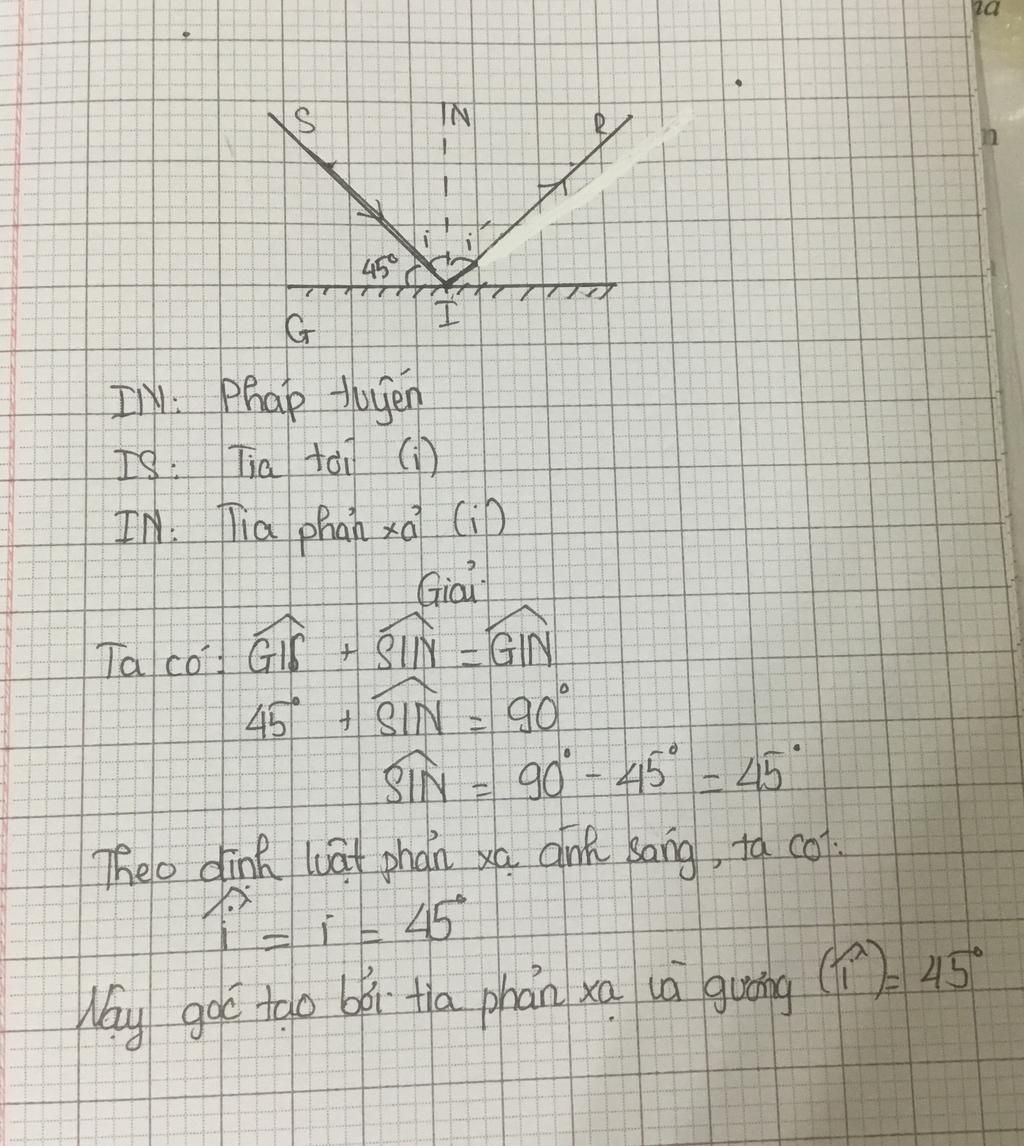 S IN R
i i'
45°
G I
IN: Pháp tuyến
IS: Tia tới (i)
IN: Tia phản xả (i')
Giải
Ta có: GIS + SIN = GIN
45° + SIN = 90°
SIN = 90° - 45° = 45°
Theo định luật phản xạ ánh sáng, ta có:
i' = i = 45°
Vậy góc tạo bởi tia phản xạ và gương (i') = 45°